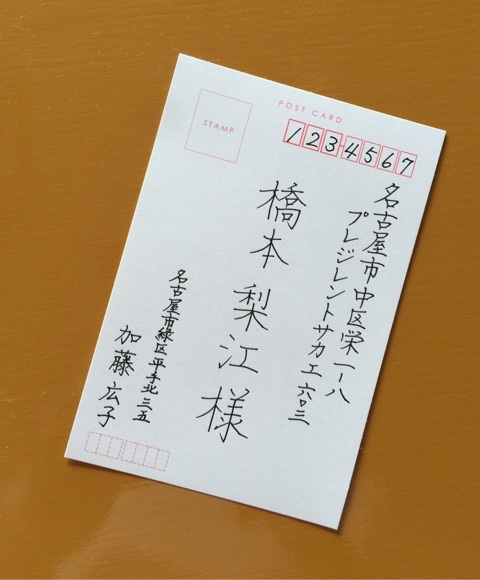 POST CARD
STAMP
1234567
名古屋市中区栄一-八
プレジレントサカエ六〇三
橋本梨江様
名古屋市緑区平手北三五
加藤広子